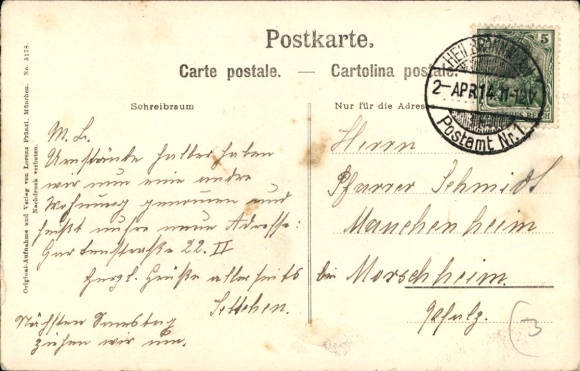 Postkarte.
Carte postale. — Cartolina postale.
Schreibraum
Nur für die Adresse
Original-Aufnahme und Verlag von Lorenz Fränzl, München. No. 5178.
Nachdruck verboten.
5
HEILBRONN
2-APR.14.11-12V.
Postamt Nr. 1.
M. L.
Umstände halber haben
wir nun eine andre
Wohnung genommen und
heißt unsre neue Adresse:
Gartenstraße 22. II
Herzl. Grüße allerseits
Settchen.
Nächsten Samstag
ziehen wir um.
Herrn
Pfarrer Schmidt
Mauchenheim
bei Morschheim.
Pfalz.
3